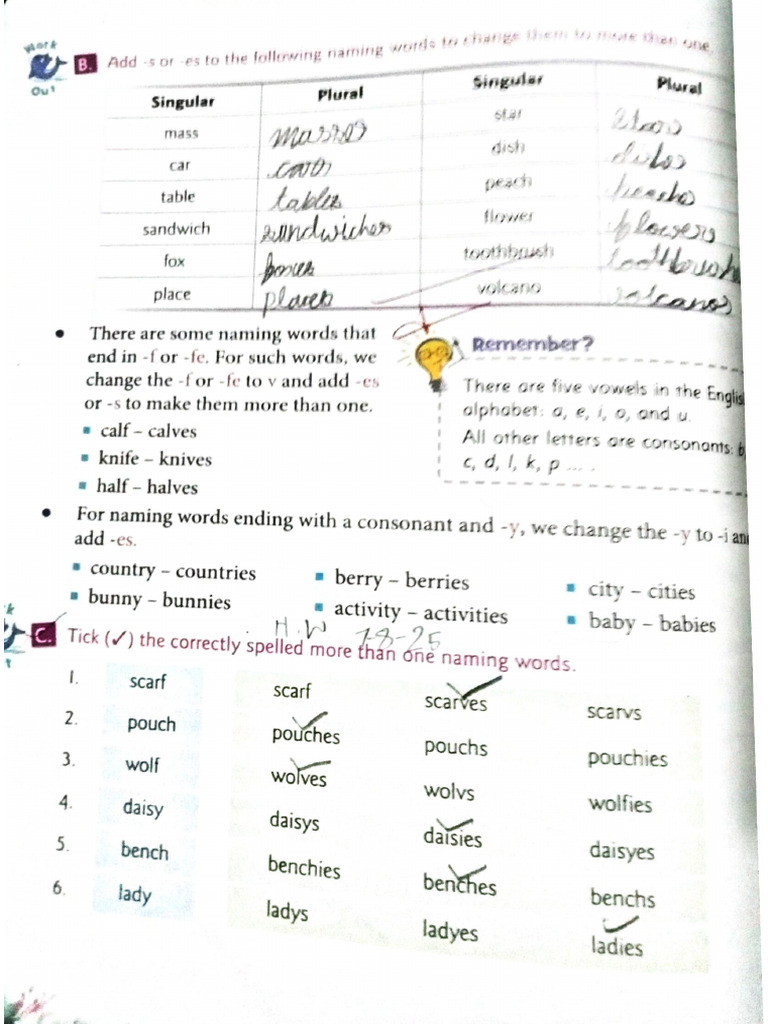 Work
Out
B. Add -s or -es to the following naming words to change them to more than one.
Singular Plural Singular Plural
mass masses star stars
car cars dish dishes
table tables peach
sandwich sandwiches flower flowers
fox toothbrush
place places volcano volcanos
• There are some naming words that
end in -f or -fe. For such words, we
change the -f or -fe to v and add -es
or -s to make them more than one.
calf – calves
knife – knives
half – halves
Remember?
There are five vowels in the Englis
alphabet: a, e, i, o, and u.
All other letters are consonants: b
c, d, l, k, p ... .
• For naming words ending with a consonant and -y, we change the -y to -i an
add -es.
country – countries berry – berries city – cities
bunny – bunnies activity – activities baby – babies
H.W 7-8-25
k
t
C. Tick (✓) the correctly spelled more than one naming words.
1. scarf scarf scarves ✓ scarvs
2. pouch pouches ✓ pouchs pouchies
3. wolf wolves ✓ wolvs wolfies
4. daisy daisys daisies ✓ daisyes
5. bench benchies benches ✓ benchs
6. lady ladys ladyes ladies ✓